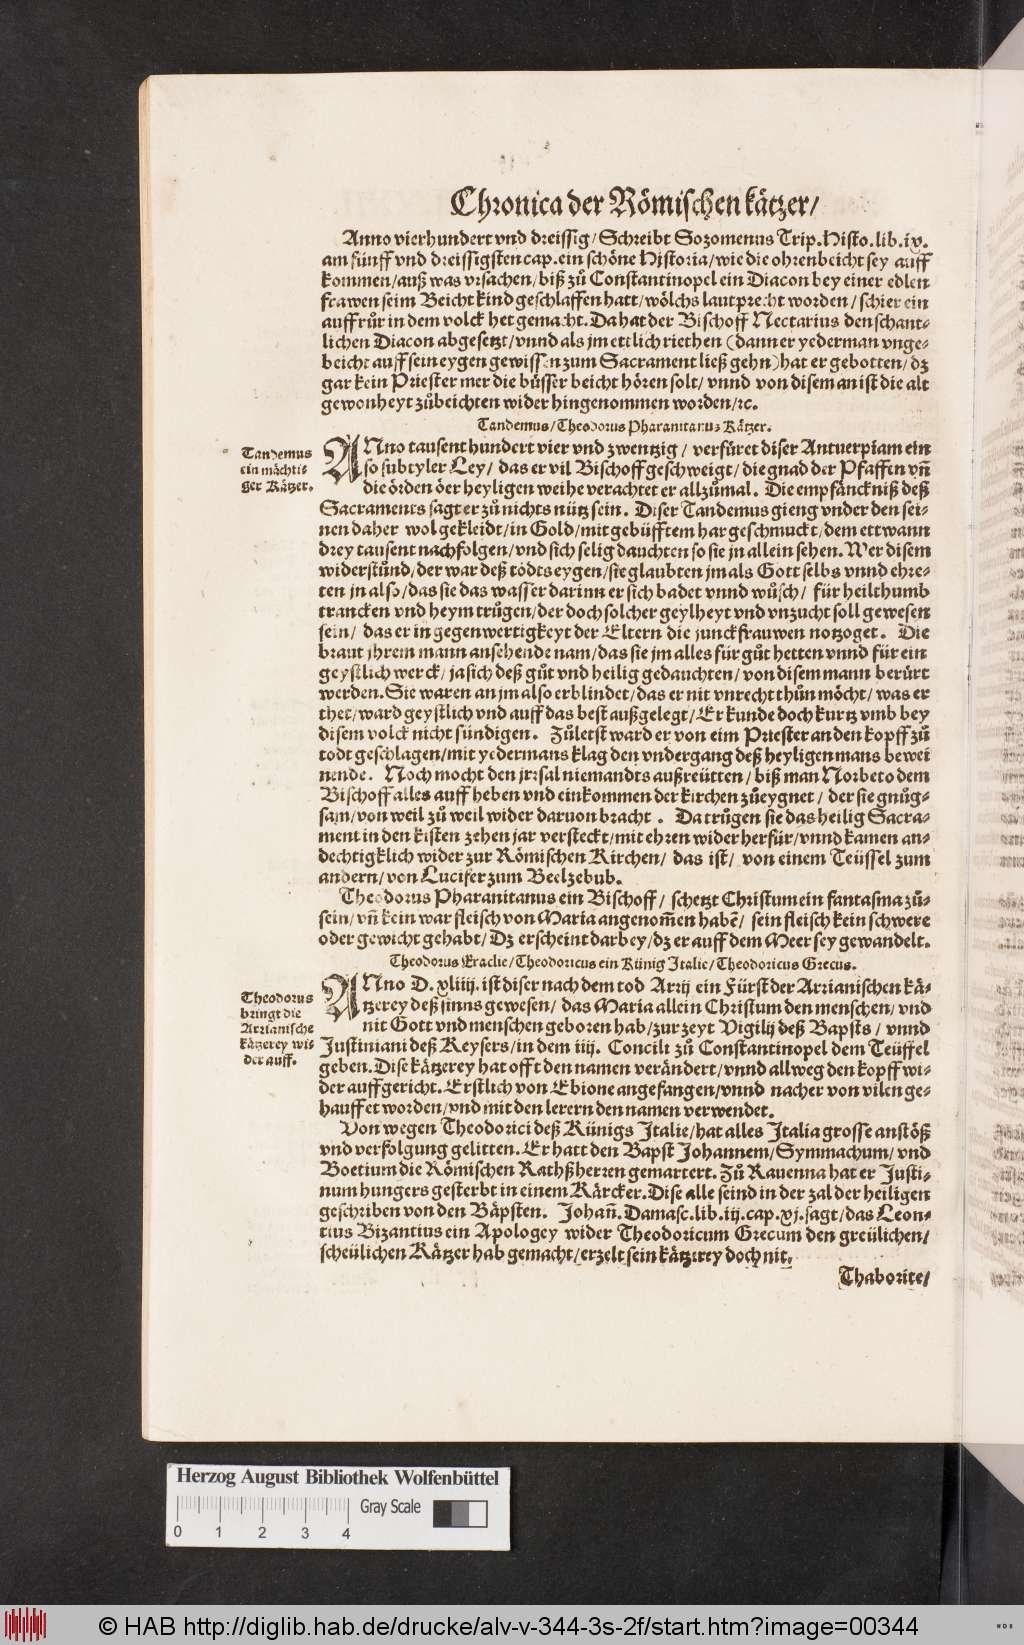 Chronica der Römischen kätzer/
Anno vierhundert vnd dreissig/ Schreibt Sozomenus Trip. Histo. lib. ix.
am fünff vnd dreissigsten cap. ein schöne Historia/ wie die ohrenbeicht sey auff
kommen/ auß was vrsachen/ biß zů Constantinopel ein Diacon bey einer edlen
frawen seim Beicht kind geschlaffen hatt/ wölchs lautprecht worden/ schier ein
auffrůr in dem volck het gemacht. Da hat der Bischoff Nectarius den schant-
lichen Diacon abgesetzt/ vnnd als jm ettlich riethen (dann er yederman vnge-
beicht auff sein eygen gewissen zum Sacrament ließ gehn) hat er gebotten/ dz
gar kein Priester mer die büsser beicht hören solt/ vnnd von disem an ist die alt
gewonheyt zůbeichten wider hingenommen worden/ ꝛc.
Tandemus/ Theodorus Pharanitanus Kätzer.
Tandemus
ein mächti-
ger Kätzer.
ANno tausent hundert vier vnd zwentzig/ verfüret diser Antuerpiam ein
so subtyler Ley/ das er vil Bischoff geschweigt/ die gnad der Pfaffen vn̄
die örden öer heyligen weihe verachtet er allzůmal. Die empfänckniß deß
Sacraments sagt er zů nichts nütz sein. Diser Tandemus gieng vnder den sei-
nen daher wol gekleidt/ in Gold/ mit gebüfftem har geschmuckt/ dem ettwann
drey tausent nachfolgen/ vnd sich selig dauchten so sie jn allein sehen. Wer disem
widerstůnd/ der war deß tödts eygen/ sie glaubten jm als Gott selbs vnnd ehre-
ten jn also/ das sie das wasser darinn er sich badet vnnd wůsch/ für heilthumb
trancken vnd heym trůgen/ der doch solcher geylheyt vnd vnzucht soll gewesen
sein/ das er in gegenwertigkeyt der Eltern die junckfrauwen notzoget. Die
braut jhrem mann ansehende nam/ das sie jm alles für gůt hetten vnnd für ein
geystlich werck/ ja sich deß gůt vnd heilig gedauchten/ von disem mann berürt
werden. Sie waren an jm also erblindet/ das er nit vnrecht thůn möcht/ was er
thet/ ward geystlich vnd auff das best außgelegt/ Er kunde doch kurtz vmb bey
disem volck nicht sündigen. Zůletst ward er von eim Priester an den kopff zů
todt geschlagen/ mit yedermans klag den vndergang deß heyligen mans bewei
nende. Noch mocht den jrrsal niemandts außreütten/ biß man Norbeto dem
Bischoff alles auff heben vnd einkommen der kirchen zůeygnet/ der sie gnůg-
sam/ von weil zů weil wider daruon bracht. Da trůgen sie das heilig Sacra-
ment in den kisten zehen jar versteckt/ mit ehren wider herfür/ vnnd kamen an-
dechtigklich wider zur Römischen Kirchen/ das ist/ von einem Teüffel zum
andern/ von Lucifer zum Beelzebub.
Theodorus Pharanitanus ein Bischoff/ schetzt Christum ein fantasma zů-
sein/ vn̄ kein war fleisch von Maria angenom̄en habē/ sein fleisch kein schwere
oder gewicht gehabt/ Dz erscheint darbey/ dz er auff dem Meer sey gewandelt.
Theodorus Eraclie/ Theodoricus ein Künig Italie/ Theodoricus Grecus.
Theodorus
bringt die
Arrianische
kätzerey wi-
der auff.
ANno D. xliiij. ist diser nach dem tod Arrij ein Fürst der Arrianischen kä-
tzerey deß sinns gewesen/ das Maria allein Christum den menschen/ vnd
nit Gott vnd menschen geboren hab/ zur zeyt Vigilij deß Bapsts/ vnnd
Justiniani deß Keysers/ in dem iiij. Concili zů Constantinopel dem Teüffel
geben. Dise kätzerey hat offt den namen verändert/ vnnd allweg den kopff wi-
der auffgericht. Erstlich von Ebione angefangen/ vnnd nacher von vilen ge-
hauffet worden/ vnd mit den lerern den namen verwendet.
Von wegen Theodorici deß Künigs Italie/ hat alles Italia grosse anstöß
vnd verfolgung gelitten. Er hatt den Bapst Johannem/ Symmachum/ vnd
Boetium die Römischen Rathßherren gemartert. Zů Rauenna hat er Justi-
num hungers gesterbt in einem Kärcker. Dise alle seind in der zal der heiligen
geschriben von den Bäpsten. Johan̄. Damasc. lib. ij. cap. xj. sagt/ das Leon-
tius Bizantius ein Apologey wider Theodoricum Grecum den greülichen/
scheülichen Kätzer hab gemacht/ erzelt sein kätzerey doch nit.
Thaborite/
Herzog August Bibliothek Wolfenbüttel
Gray Scale
0 1 2 3 4
© HAB http://diglib.hab.de/drucke/alv-v-344-3s-2f/start.htm?image=00344